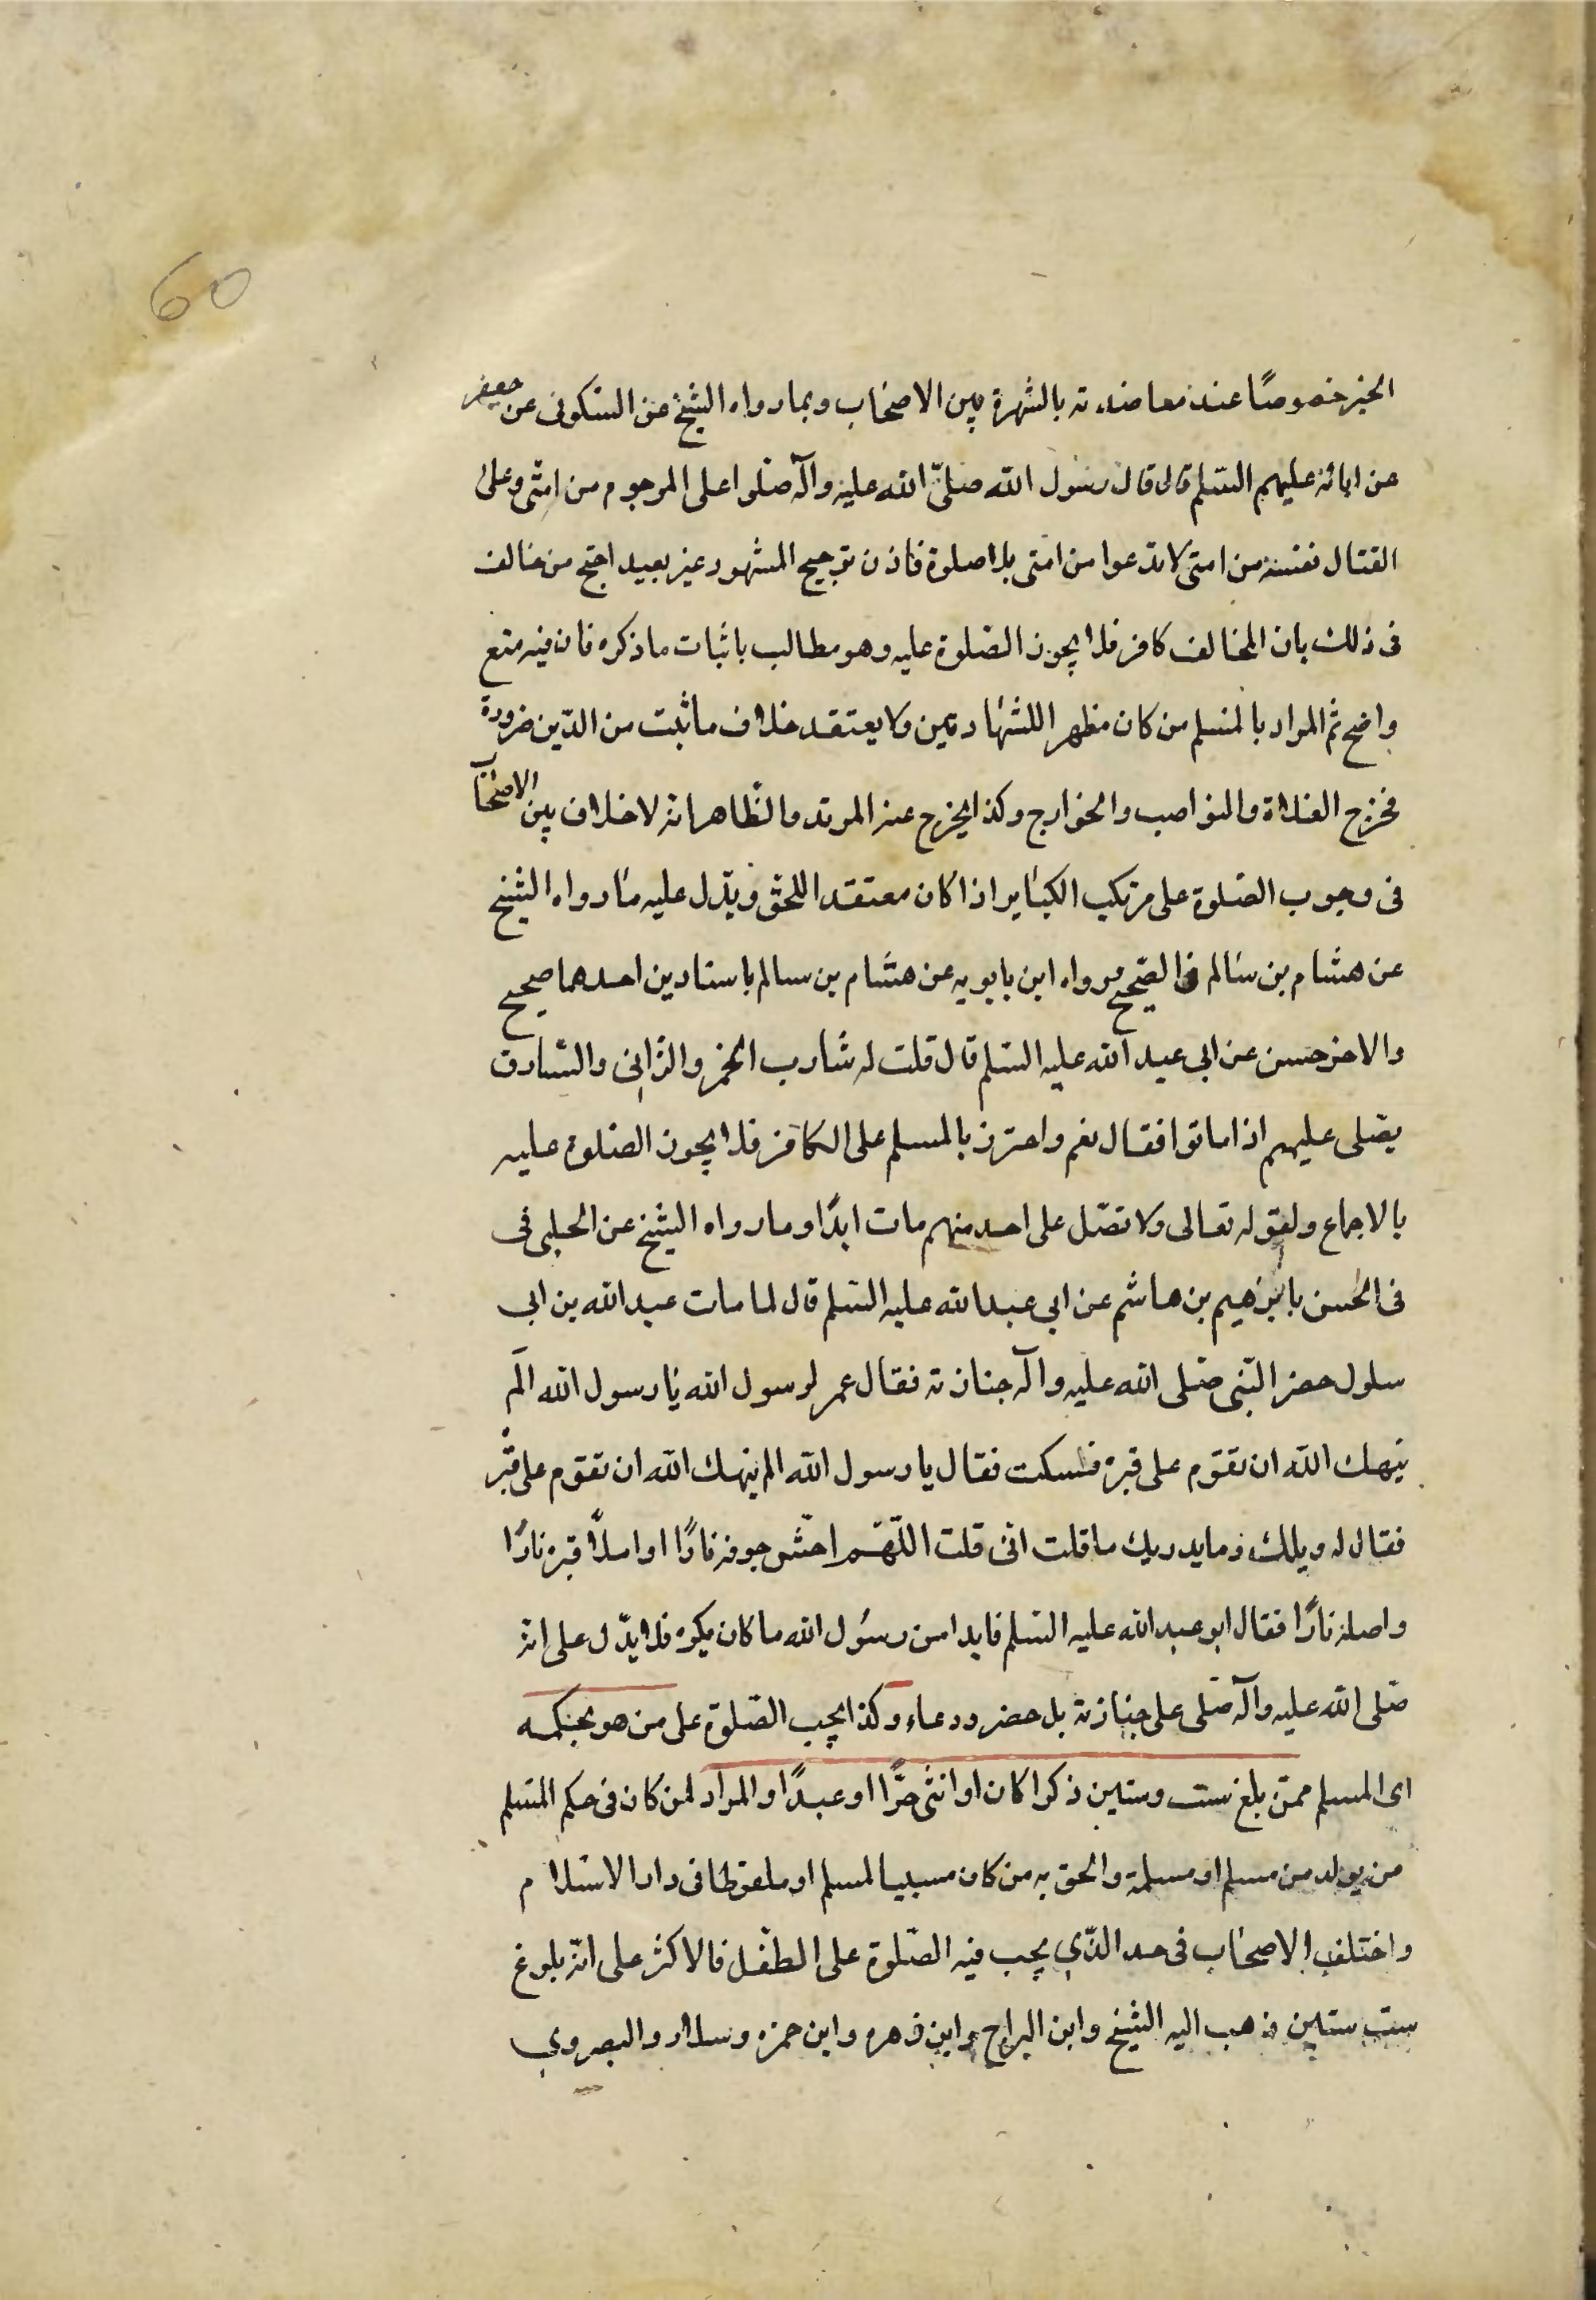 60
الخبر خصوصًا عند معاضدته بالشهرة بين الاصحاب وبما رواه الشيخ عن السكونى عن جعفر
عن ابائه عليهم السلم قال قال رسول الله صلّى الله عليه وآله صلوا على المرجوم من امتى وعلى
القتال نفسه من امتى لا تدعوا من امتى بلا صلوة فاذن ترجيح المشهور غير بعيد احتج من خالف
فى ذلك بان المخالف كافر فلا يجوز الصلوة عليه وهو مطالب باثبات ما ذكره فان فيه منع
واضح ثم المراد بالمسلم من كان مظهرا للشهادتين ولا يعتقد خلاف ما ثبت من الدّين ضرورة
فخرج الغلاة والنواصب والخوارج وكذا يخرج عنه المرتد والظاهر انه لا خلاف بين الاصحاب
فى وجوب الصلوة على مرتكب الكباير اذا كان معتقدا للحق ويدّل عليه ما رواه الشيخ
عن هشام بن سالم فى الصحيح ورواه ابن بابويه عن هشام بن سالم باسنادين احدهما صحيح
والاخر حسن عن ابي عبد الله عليه السلم قال قلت له شارب الخمر والزانى والسّارق
يصّلى عليهم اذا ماتوا فقال نعم واحترز بالمسلم على الكافر فلا يجوز الصلوة عليه
بالاجماع ولقوله تعالى ولا تصّل على احد منهم مات ابدًا وما رواه الشيخ عن الحلبى فى
فى الحسن بابرهيم بن هاشم عن ابي عبد الله عليه السلم قال لما مات عبد الله بن ابى
سلول حضر النّبى صّلى الله عليه وآله جنازته فقال عمر لرسول الله يا رسول الله الَم
ينهك الله ان تقوم على قبره فسكت فقال يا رسول الله الم ينهك الله ان تقوم على قبره
فقال له ويلك وما يدريك ما قلت انّى قلت اللّهّم احش جوفه نارًا او املأ قبره نارًا
واصله نارًا فقال ابو عبد الله عليه السلم فابدا من رسُول الله ما كان يكره فلا يدّل على انه
صّلى الله عليه وآله صّلى على جنازته بل حضر ودعاء وكذا يجب الصّلوة على من هو بحكمه
اى المسلم ممّن بلغ ست وسنين ذكرا كان او انثى حرًّا او عبدًا والمراد لمن كان فى حكم المسلم
من يولد من مسلم او مسلمة والحق به من كان مسبيا لمسلم او ملقوطا فى دار الاسلام
واختلف الاصحاب فى حد الذّي يجب فيه الصّلوة على الطفل فالاكثر على انّه بلوغ
ست سنين ذهب اليه الشيخ وابن البراج وابن زهره وابن حمزه وسلار والبصروي